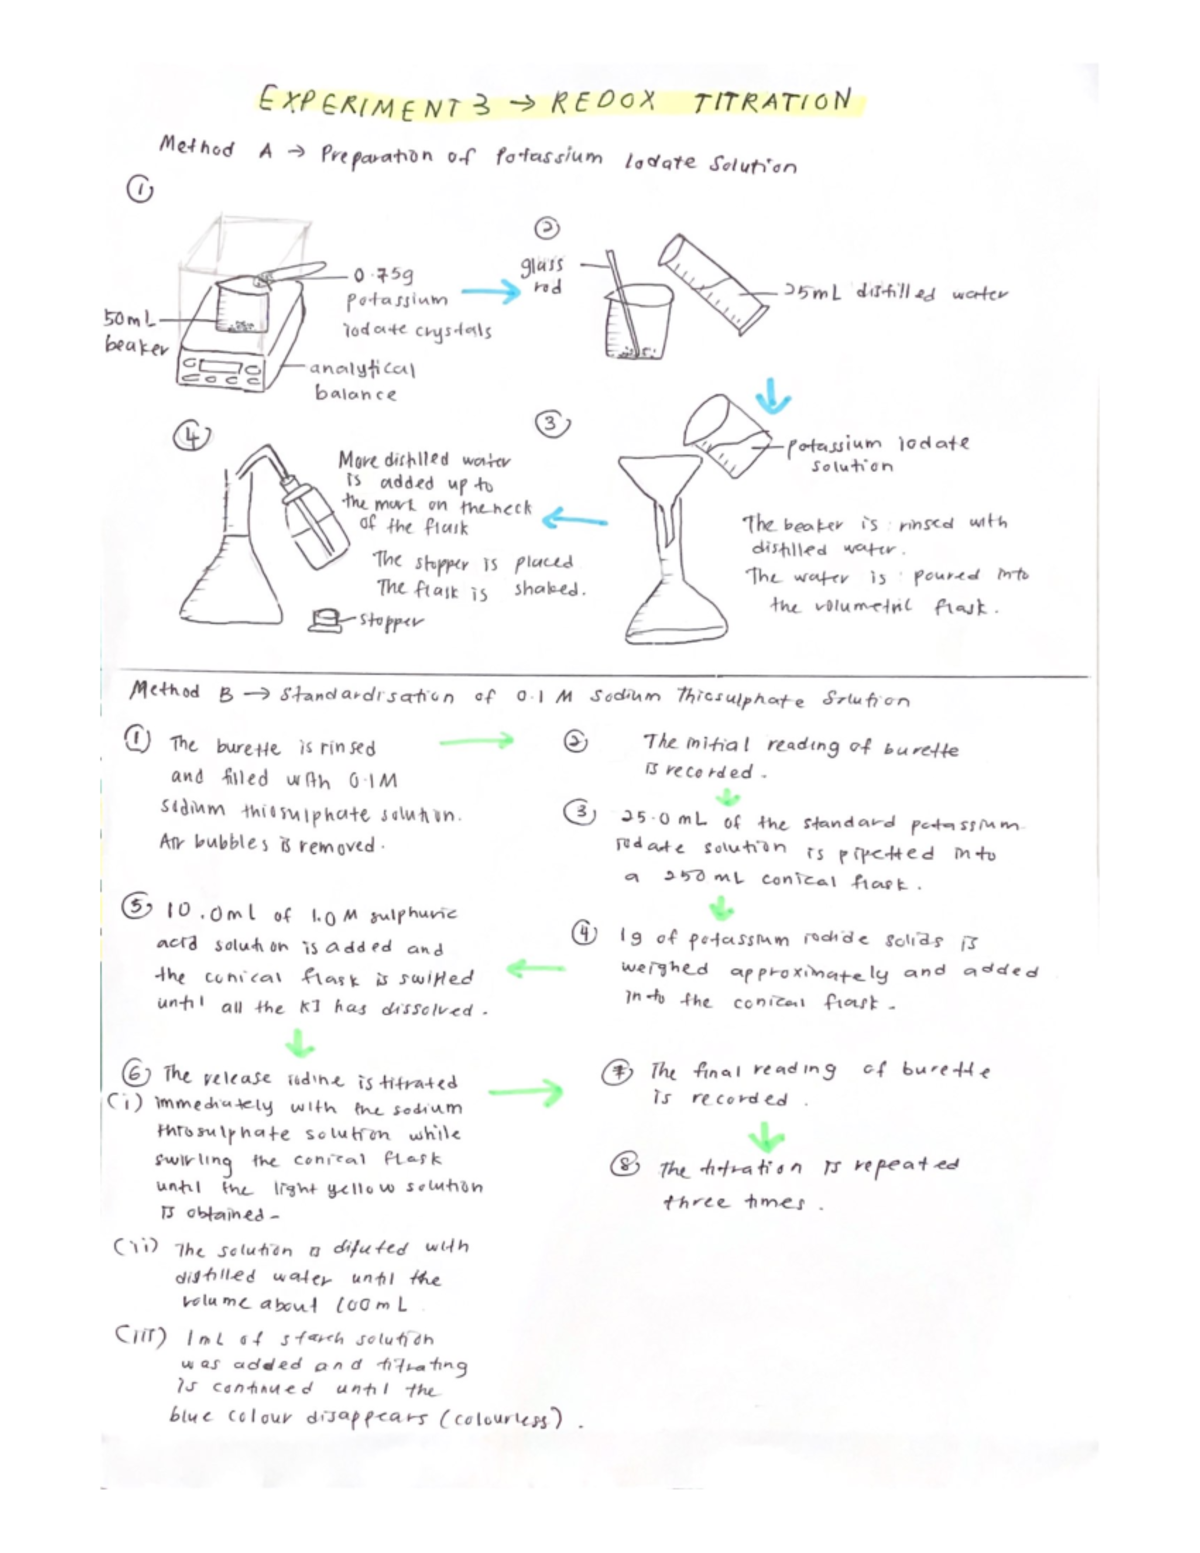 EXPERIMENT 3 → REDOX TITRATION
Method A → Preparation of Potassium Iodate Solution
①
0.75g
potassium
iodate crystals
50mL
beaker
analytical
balance
②
glass
rod
25mL distilled water
③
potassium iodate
solution
The beaker is rinsed with
distilled water.
The water is poured into
the volumetric flask.
④
More distilled water
is added up to
the mark on the neck
of the flask
The stopper is placed
The flask is shaked.
stopper
Method B → Standardisation of 0.1 M Sodium Thiosulphate Solution
① The burette is rinsed
and filled with 0.1M
sodium thiosulphate solution.
Air bubbles is removed.
② The initial reading of burette
is recorded.
③ 25.0 mL of the standard potassium
iodate solution is pipetted into
a 250 mL conical flask.
④ 1g of potassium iodide solids is
weighed approximately and added
into the conical flask.
⑤ 10.0mL of 1.0 M sulphuric
acid solution is added and
the conical flask is swirled
until all the KI has dissolved.
⑥ The release iodine is titrated
(i) immediately with the sodium
thiosulphate solution while
swirling the conical flask
until the light yellow solution
is obtained.
(ii) The solution is diluted with
distilled water until the
volume about 100mL
(iii) 1mL of starch solution
was added and titrating
is continued until the
blue colour disappears (colourless).
⑦ The final reading of burette
is recorded.
⑧ The titration is repeated
three times.